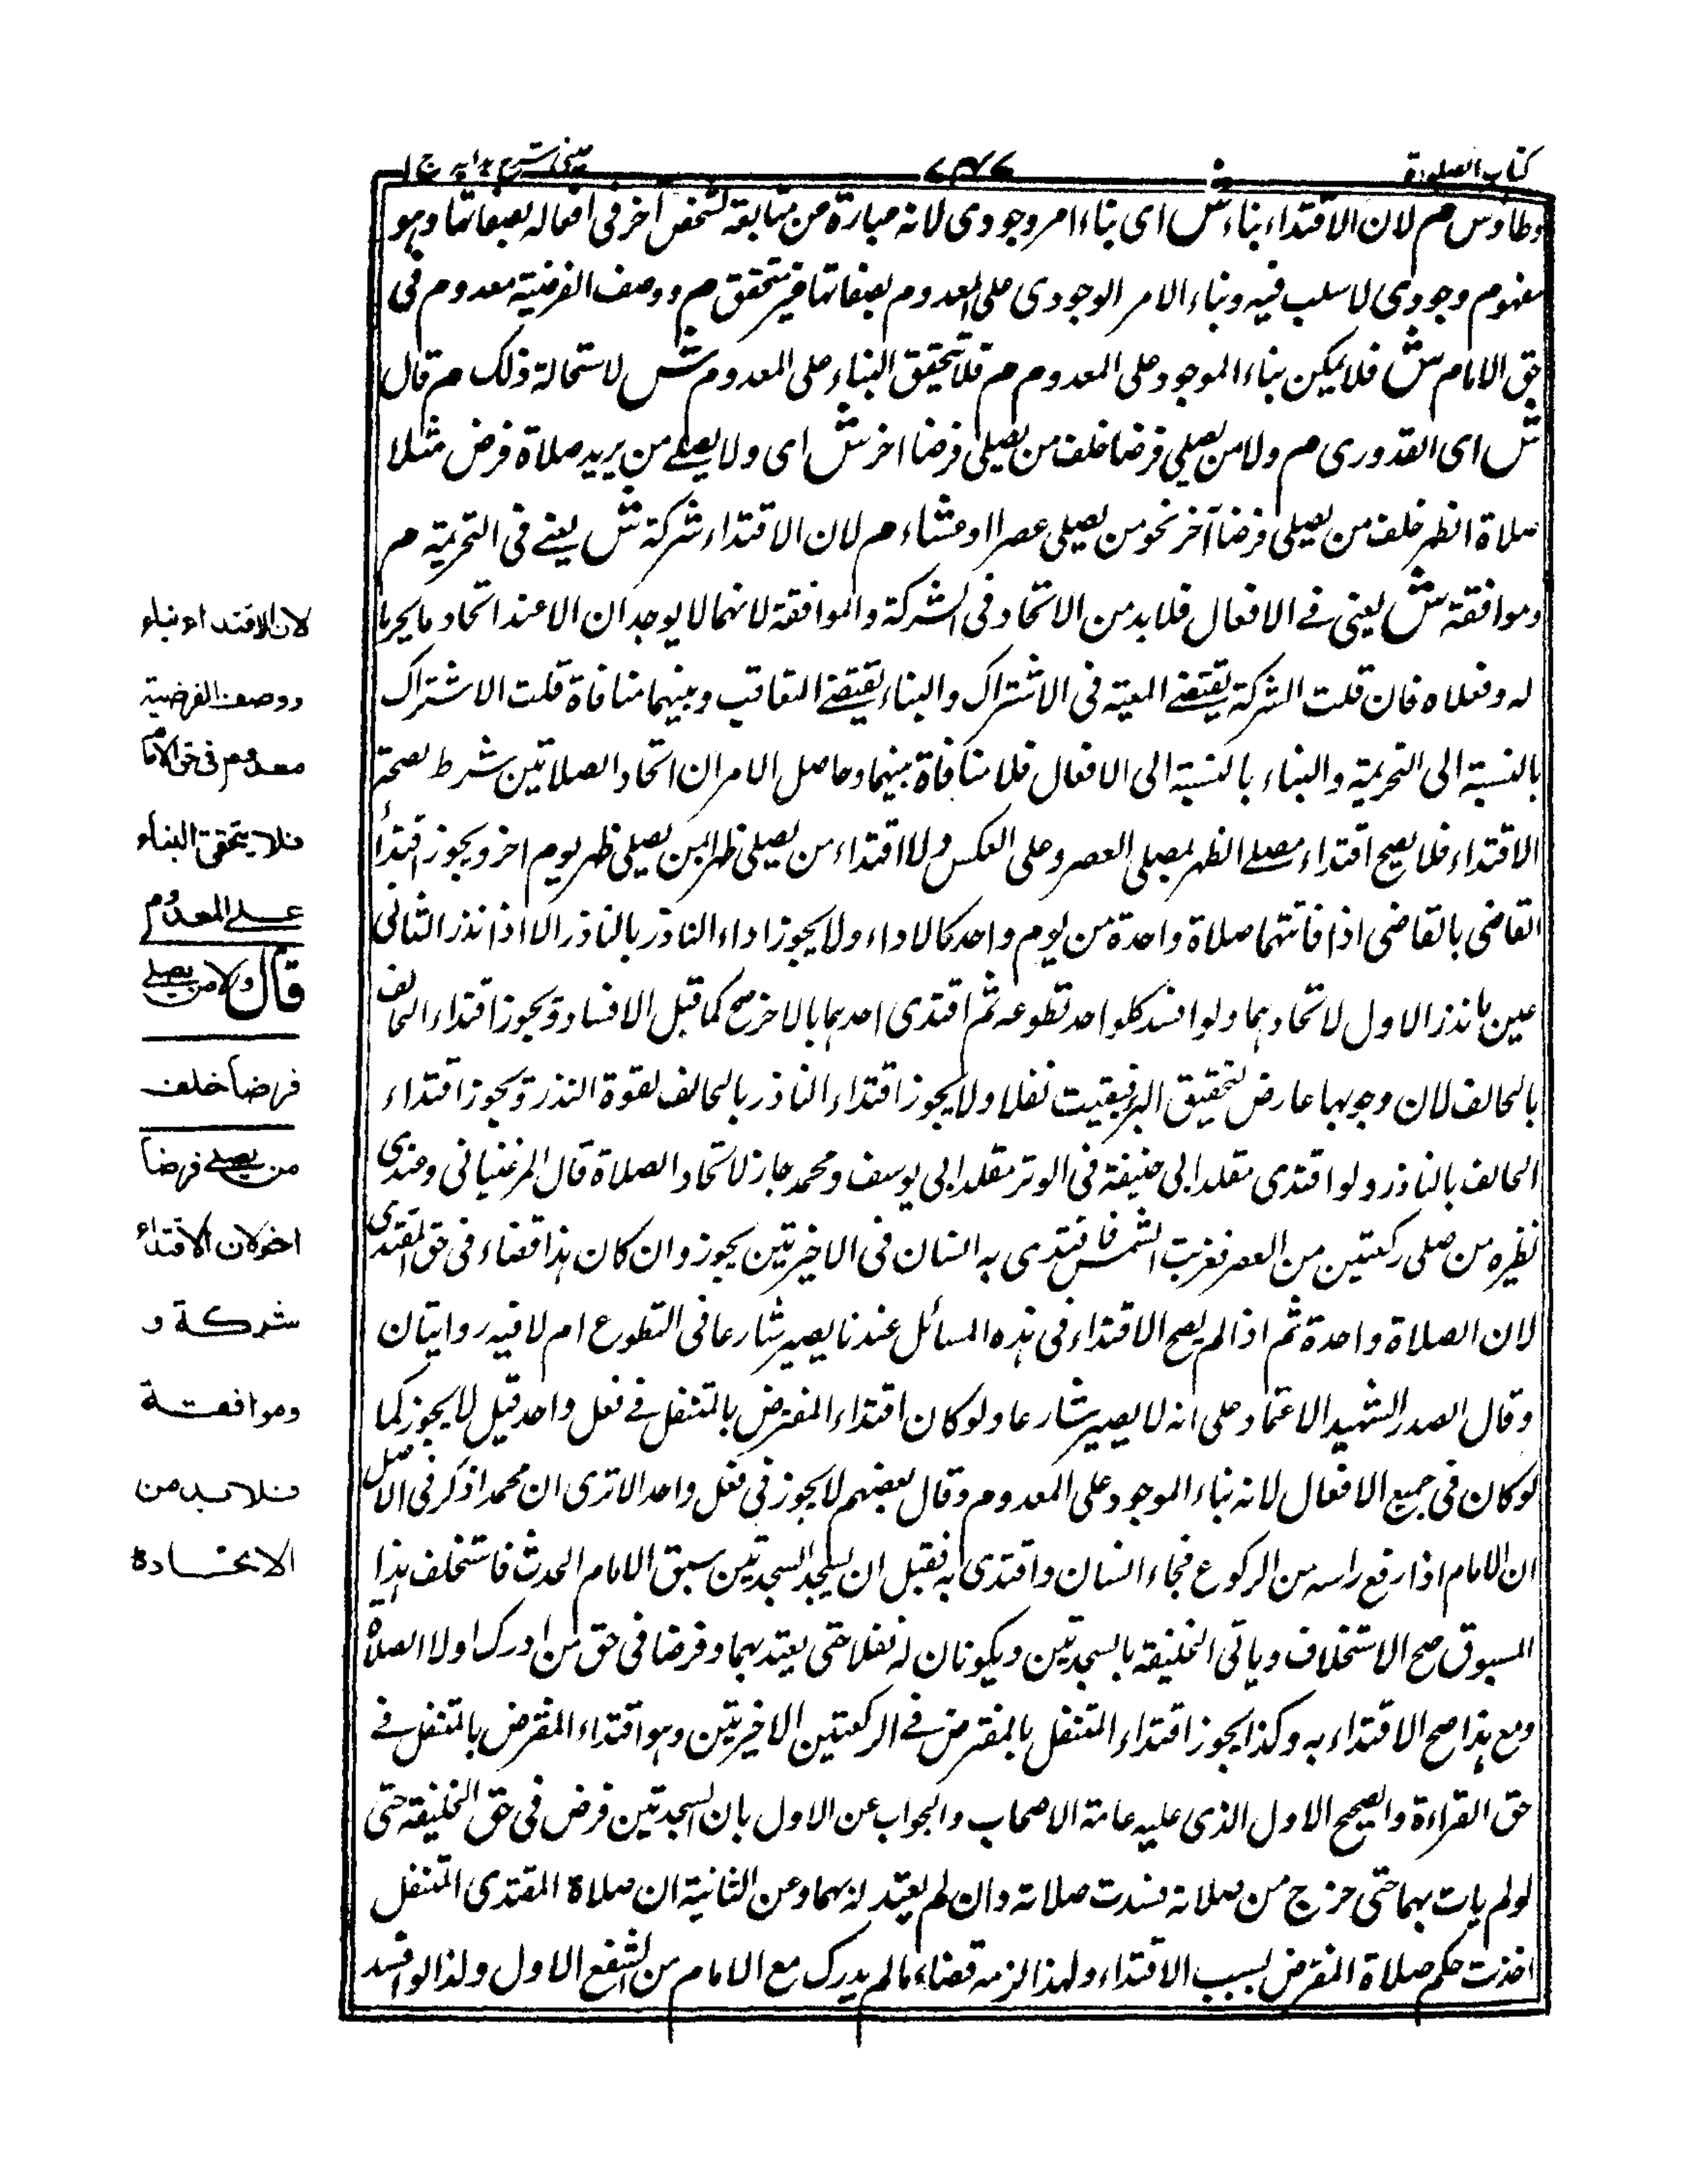 كتاب الصلوة
عينى شرح هدايه ج ١
وطاوس م لان الاقتداء بناء ش اى بناء امر وجودى لانه عبارة من متابقة لشخص آخر فى افعاله بصفاتها وهو
مفهوم وجودى لا سلب فيه وبناء الامر الوجودى على المعدوم بصفاتها غير متحقق م ووصف الفرضية معدوم فى
حق الامام ش فلا يمكن بناء الموجود على المعدوم م فلا تحقيق البناء على المعدوم ش لاستحالة ذلك م قال
ش اى القدورى م ولا من يصلى فرضا خلف من يصلى فرضا اخر ش اى ولا يصلے من يريد صلاة فرض مثلا
صلاة الظهر خلف من يصلى فرضا آخر نحو من يصلى عصرا او عشاء م لان الاقتداء شركة ش يعنے فى التحريمة م
وموافقة ش يعنى فے الافعال فلا بد من الاتحاد فى الشركة والموافقة لانهما لا يوجدان الا عند اتحاد ما يحرما
له وفعلاه فان قلت الشركة يقتضے المعية فى الاشتراك والبناء يقتضے التعاقب وبينهما منافاة قلت الاشتراك
بالنسبة الى التحريمة والبناء بالنسبة الى الافعال فلا منافاة بينهما وحاصل الامر ان اتحاد الصلاتين شرط لصحة
الاقتداء فلا يصح اقتداء مصلے الظهر بمصلى العصر وعلى العكس ولا اقتداء من يصلى ظهرا بمن يصلى ظهر يوم اخر ويجوز اقتدأ
القاضى بالقاضى اذا فاتتهما صلاة واحدة من يوم واحد كالاداء ولا يجوز اداء الناذر بالناذر الا اذا نذر الثانى
عين ما نذر الاول لاتحادهما ولو افسد كلواحد تطوعه ثم اقتدى احدهما بالاخر صح كما قبل الافساد ويجوز اقتداء الحالف
بالحالف لان وجوبها عارض لتحقيق البر فبقيت نفلا ولا يجوز اقتداء الناذر بالحالف لقوة النذر ويجوز اقتداء
الحالف بالناذر ولو اقتدى مقلد ابى حنيفة فى الوتر مقلد ابى يوسف ومحمد جاز لاتحاد الصلاة قال المرغنيانى وعندى
نظيره من صلى ركعتين من العصر فغربت الشمس فاقتدى به انسان فى الاخيرتين يجوز وان كان هذا قضاء فى حق المقتدى
لان الصلاة واحدة ثم اذا لم يصح الاقتداء فى هذه المسائل عندنا يصير شارعا فى التطوع ام لا فيه روايتان
وقال الصدر الشهيد الاعتماد على انه لا يصير شارعا ولو كان اقتداء المفترض بالمتنفل فے فعل واحد قيل لا يجوز كما
لو كان فى جميع الافعال لانه بناء الموجود على المعدوم وقال بعضهم لا يجوز فى فعل واحد الا ترى ان محمدا ذكر فى الاصل
ان الامام اذا رفع راسه من الركوع فجاء انسان واقتدى به فقبل ان يسجد السجدتين سبق الامام الحدث فاستخلف هذا
المسبوق صح الاستخلاف وياتى الخليفة بالسجدتين ويكونان له نفلا حتى يعتد بهما وفرضا فى حق من ادرك اولا الصلاة
ومع هذا صح الاقتداء به وكذا يجوز اقتداء المتنفل بالمفترض فے الركعتين الاخيرتين وهو اقتداء المفترض بالمتنفل فے
حق القراءة والصحيح الاول الذى عليه عامة الاصحاب والجواب عن الاول بان السجدتين فرض فى حق الخليفة حتى
لو لم يات بهما حتى خرج من صلاته فسدت صلاته وان لم يعتد له بهما وعن الثانية ان صلاة المقتدى المتنفل
اخذت حكم صلاة المفترض بسبب الاقتداء ولهذا لزمه قضاء مالم يدرك مع الامام من الشفع الاول ولذا لو افسد
لان الاقتداء بناء
ووصف الفرضية
معدوم فى حق الامام
فلا يتحقق البناء
علے المعدوم
قال ولا من يصلے
فرضا خلف
من يصلے فرضا
اخر لان الاقتداء
شركة و
وموافقة
فلا بد من
الاتحاد